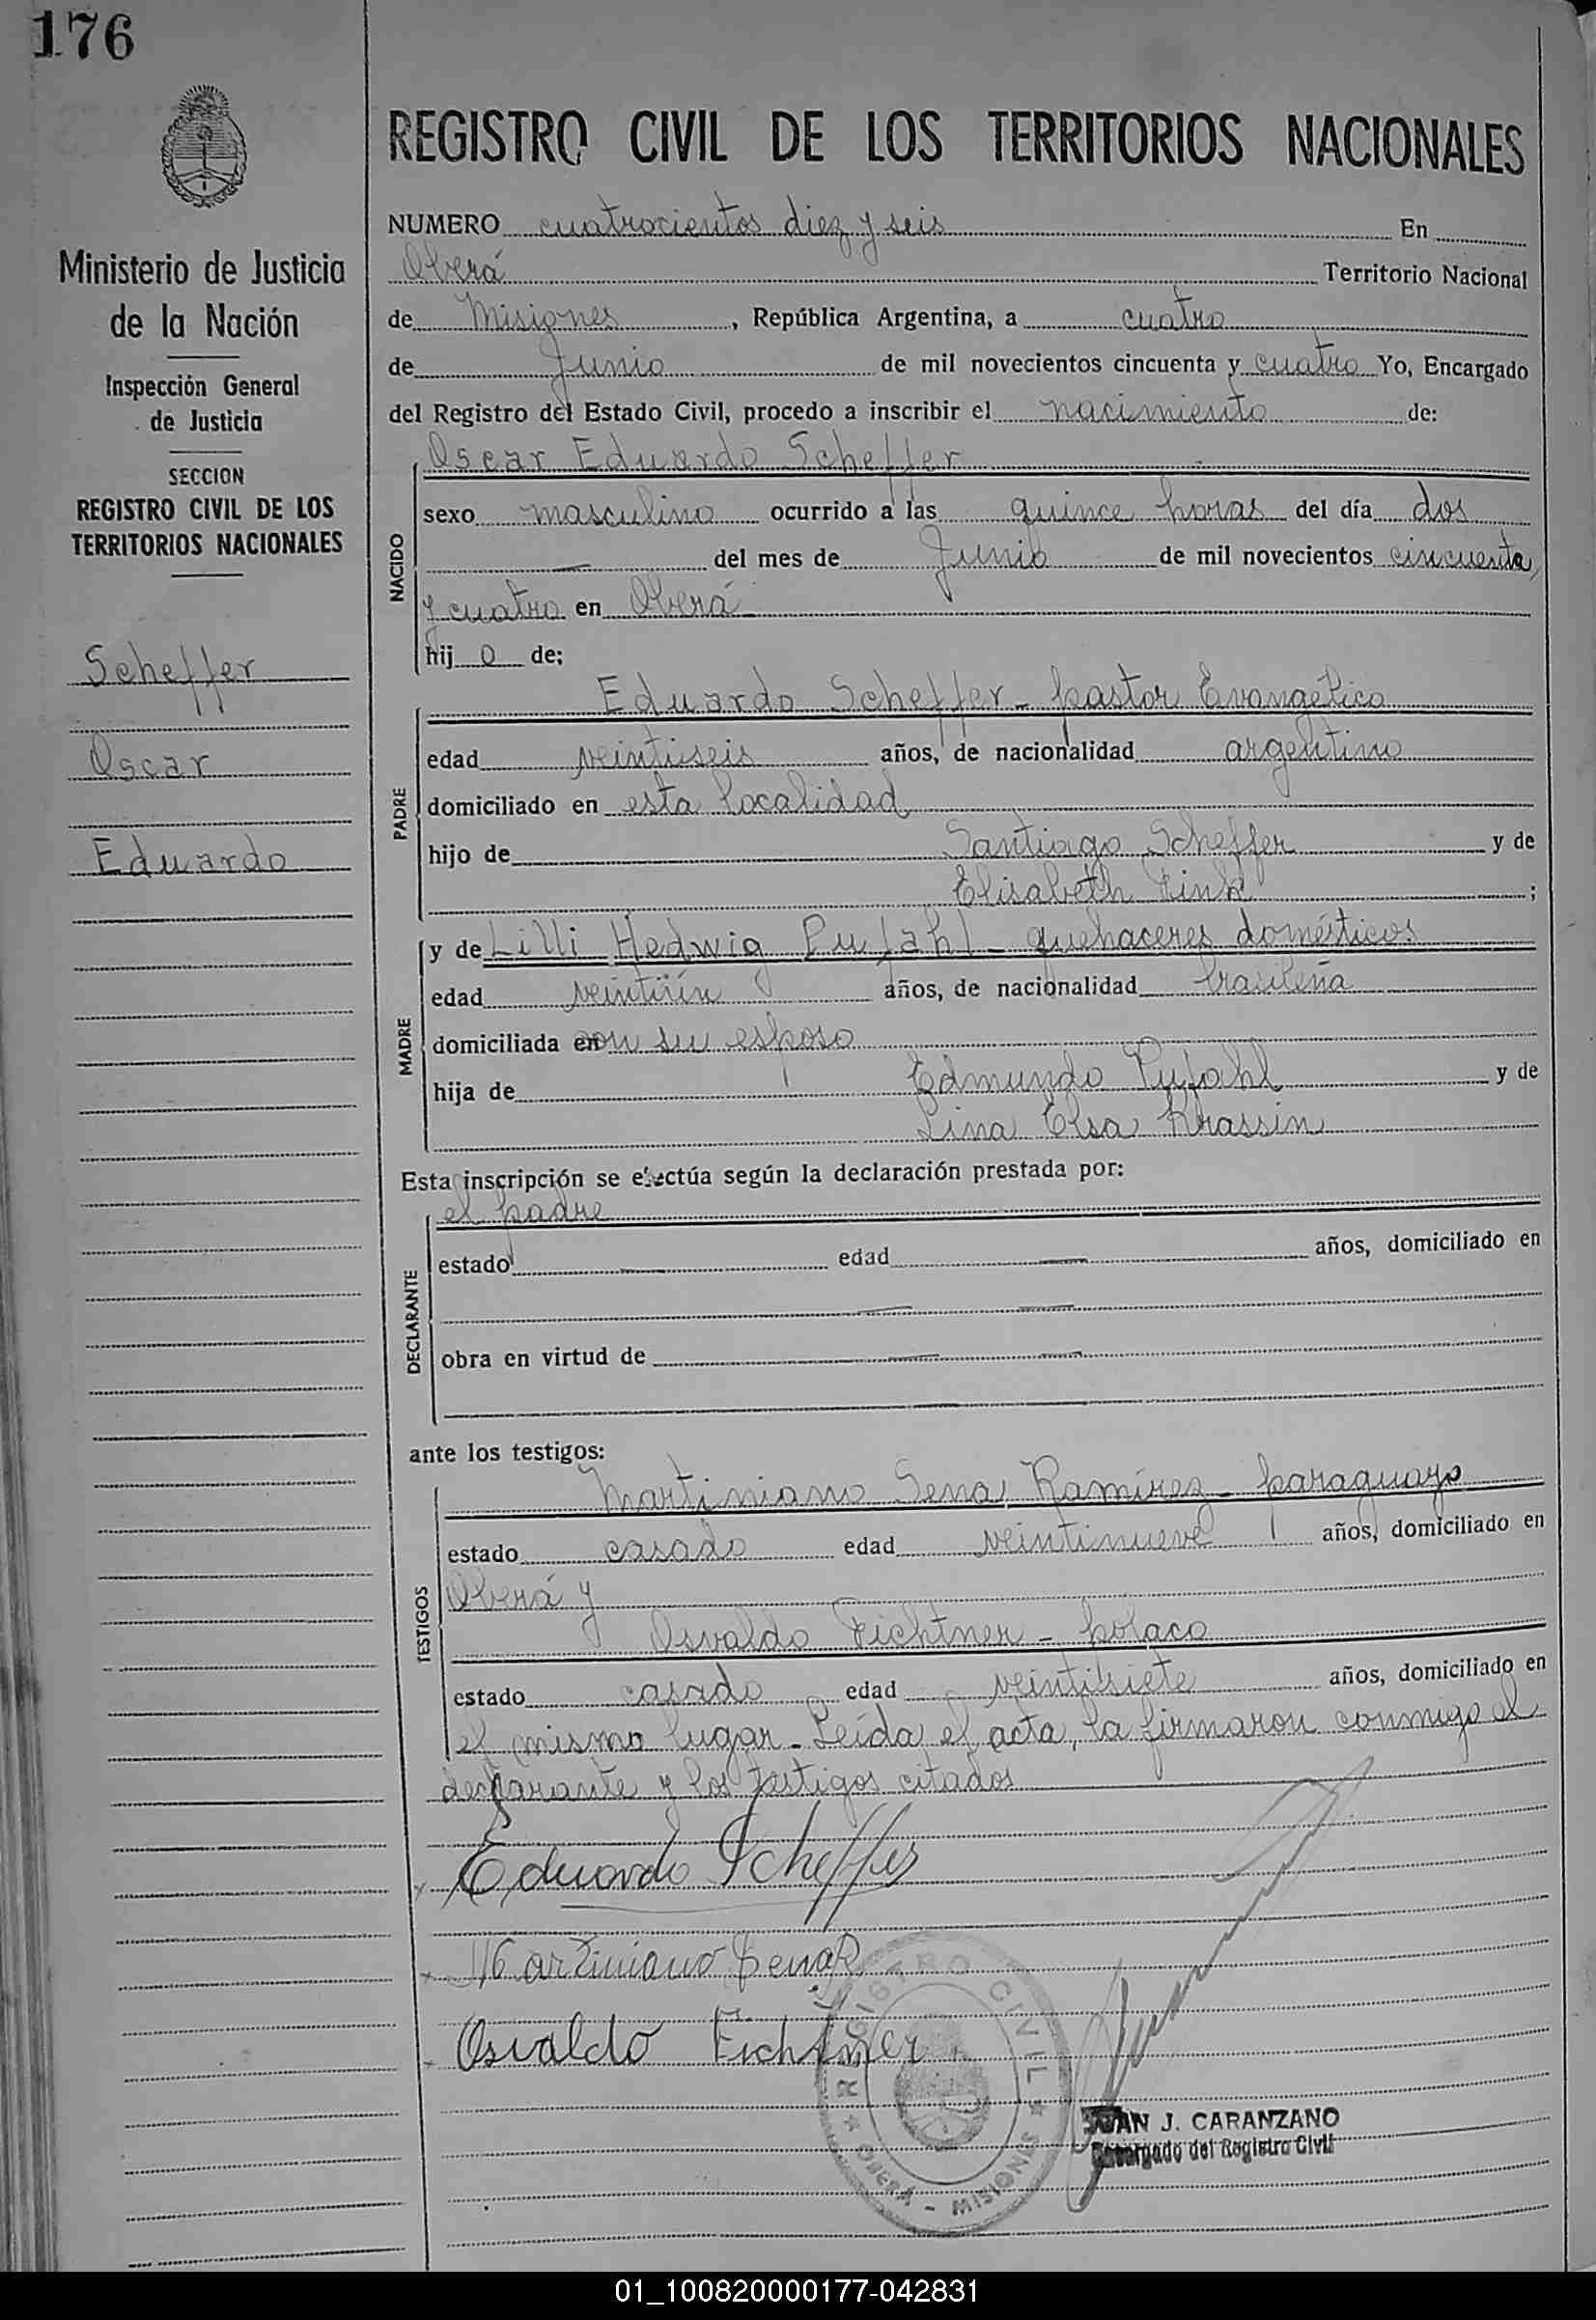 176
REGISTRO CIVIL DE LOS TERRITORIOS NACIONALES
Ministerio de Justicia
de la Nación
Inspección General
de Justicia
SECCION
REGISTRO CIVIL DE LOS
TERRITORIOS NACIONALES
Scheffer
Oscar
Eduardo
NUMERO cuatrocientos diez y seis En
Oberá Territorio Nacional
de Misiones, República Argentina, a cuatro
de Junio de mil novecientos cincuenta y cuatro Yo, Encargado
del Registro del Estado Civil, procedo a inscribir el nacimiento de:
NACIDO
Oscar Eduardo Scheffer
sexo masculino ocurrido a las quince horas del día dos
— del mes de Junio de mil novecientos cincuenta
y cuatro en Oberá
hij o de:
PADRE
Eduardo Scheffer - pastor Evangélico
edad veintiseis años, de nacionalidad argentino
domiciliado en esta localidad
hijo de Santiago Scheffer y de
Elisabeth Fink ;
MADRE
y de Lilli Hedwig Pufahl - quehaceres domésticos
edad veintiún años, de nacionalidad brasileña
domiciliada en con su esposo
hija de Edmundo Pufahl y de
Lina Elsa Krassin
Esta inscripción se efectúa según la declaración prestada por:
DECLARANTE
el padre
estado — edad — años, domiciliado en
— —
obra en virtud de — —
— —
ante los testigos:
TESTIGOS
Martiniano Sena Ramírez - paraguayo
estado casado edad veintinueve años, domiciliado en
Oberá y
Osvaldo Fichtner - polaco
estado casado edad veintisiete años, domiciliado en
el mismo lugar - Leída el acta, la firmaron conmigo el
declarante y los testigos citados
Eduardo Scheffer
Martiniano Sena R
Osvaldo Fichtner
REGISTRO CIVIL
★ OBERÁ - MISIONES ★
JUAN J. CARANZANO
Encargado del Registro Civil
01_100820000177-042831